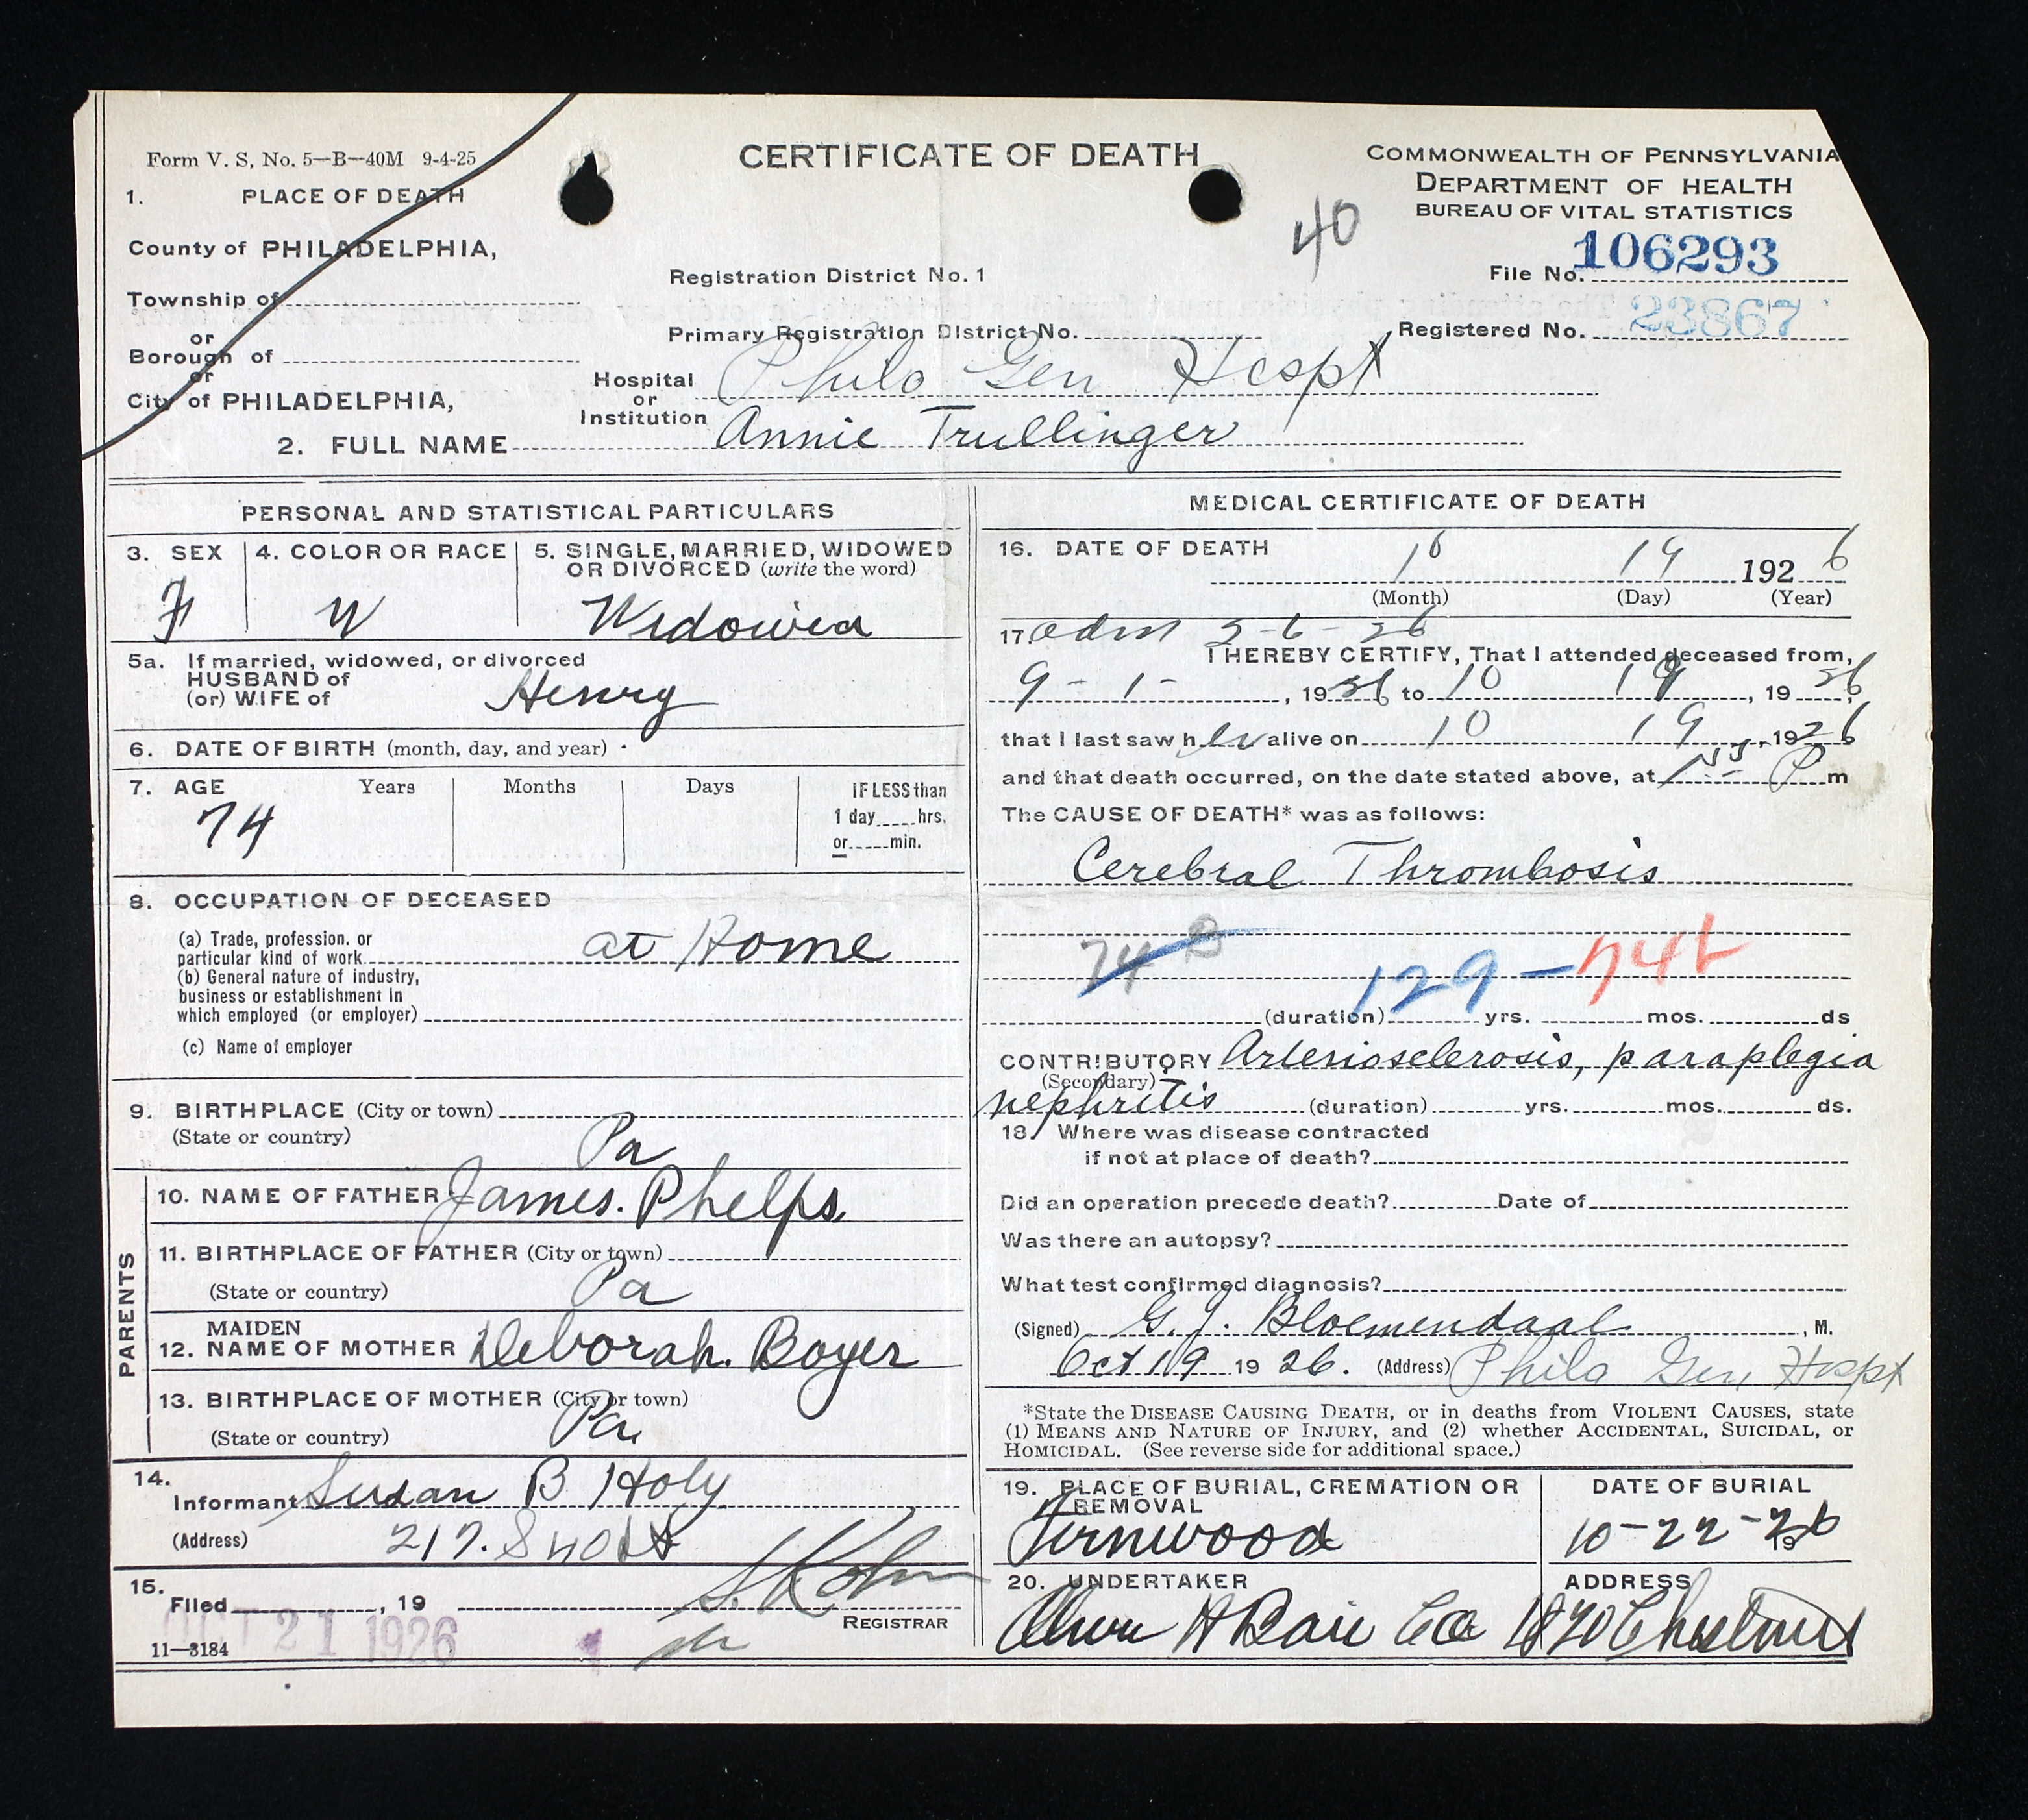 Form V. S, No. 5—B—40M 9-4-25
CERTIFICATE OF DEATH
COMMONWEALTH OF PENNSYLVANIA
DEPARTMENT OF HEALTH
BUREAU OF VITAL STATISTICS
1. PLACE OF DEATH
40
County of PHILADELPHIA,
Registration District No. 1
File No. 106293
Township of
or
Primary Registration District No.
Registered No. 23867
Borough of
or
Hospital or Institution Phila Gen Hospt
City of PHILADELPHIA,
2. FULL NAME Annie Trullinger
PERSONAL AND STATISTICAL PARTICULARS
3. SEX
F
4. COLOR OR RACE
W
5. SINGLE, MARRIED, WIDOWED
OR DIVORCED (write the word)
Widowed
5a. If married, widowed, or divorced
HUSBAND of
(or) WIFE of Henry
6. DATE OF BIRTH (month, day, and year)
7. AGE Years Months Days
74
IF LESS than
1 day hrs.
or min.
8. OCCUPATION OF DECEASED
(a) Trade, profession. or
particular kind of work at Home
(b) General nature of industry,
business or establishment in
which employed (or employer)
(c) Name of employer
9. BIRTHPLACE (City or town)
(State or country) Pa
PARENTS
10. NAME OF FATHER James. Phelps
11. BIRTHPLACE OF FATHER (City or town)
(State or country) Pa
MAIDEN
12. NAME OF MOTHER Deborah. Boyer
13. BIRTHPLACE OF MOTHER (City or town)
(State or country) Pa
14.
Informant Susan B Holy
(Address) 217. S 40 St
15.
Filed , 19
OCT 21 1926
S. Kohn
REGISTRAR
11—3184
MEDICAL CERTIFICATE OF DEATH
16. DATE OF DEATH 10 19 1926
(Month) (Day) (Year)
17. adm 5-6-26
I HEREBY CERTIFY, That I attended deceased from,
9-1- , 1926 to 10 19 , 1926,
that I last saw her alive on 10 19 , 1926
and that death occurred, on the date stated above, at P m
The CAUSE OF DEATH* was as follows:
Cerebral Thrombosis
74 B
129 — 74b
(duration) yrs. mos. ds
CONTRIBUTORY Arteriosclerosis, paraplegia
(Secondary)
nephritis (duration) yrs. mos. ds.
18. Where was disease contracted
if not at place of death?
Did an operation precede death? Date of
Was there an autopsy?
What test confirmed diagnosis?
(Signed) G. J. Bloemendaal , M.
Oct 19 1926. (Address) Phila Gen Hospt
*State the DISEASE CAUSING DEATH, or in deaths from VIOLENT CAUSES, state
(1) MEANS AND NATURE OF INJURY, and (2) whether ACCIDENTAL, SUICIDAL, or
HOMICIDAL. (See reverse side for additional space.)
19. PLACE OF BURIAL, CREMATION OR
REMOVAL
Fernwood
DATE OF BURIAL
10-22-26
19
20. UNDERTAKER
Oliver H Bair Co
ADDRESS
1820 Chestnut